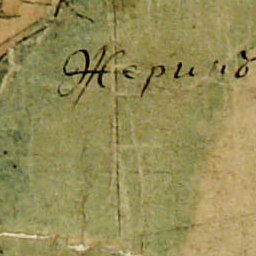 Жеринъ